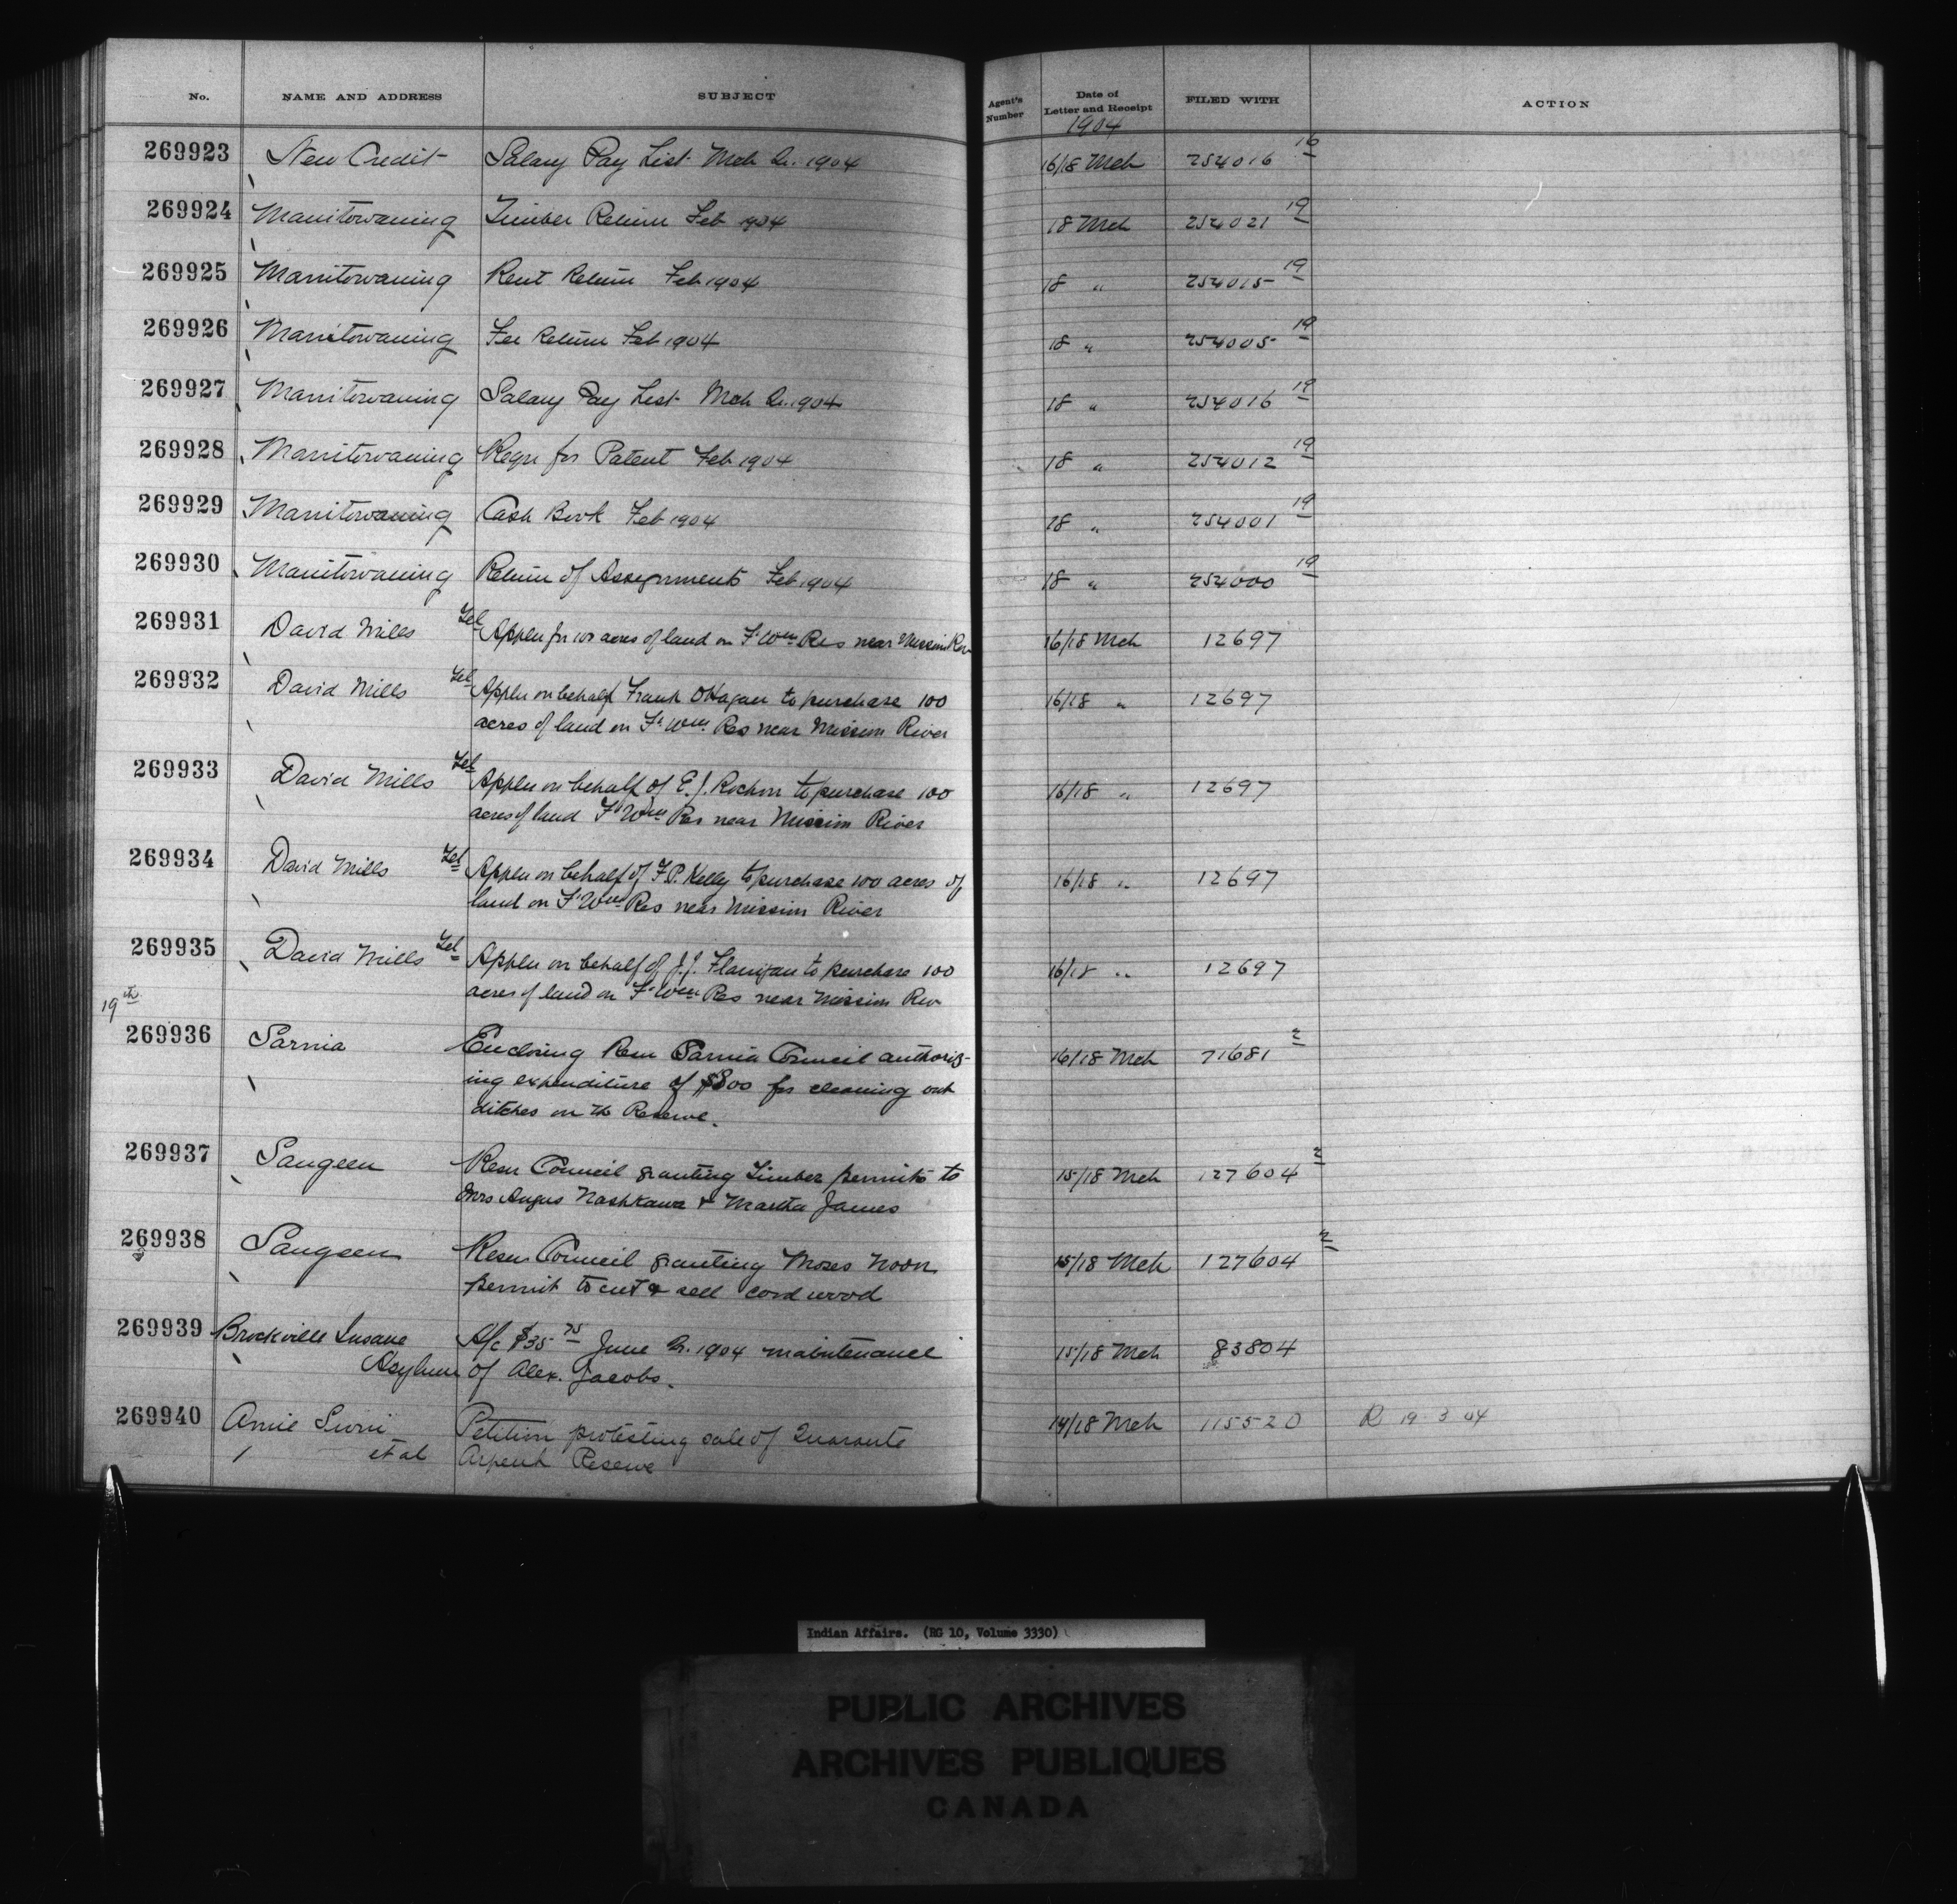 No. NAME AND ADDRESS SUBJECT Agent's Number Date of Letter and Receipt FILED WITH ACTION
1904
269923 New Credit Salary Pay List Mch Qr. 1904 16/18 Mch 254016 16
269924 Manitowaning Timber Return Feb 1904 18 Mch 254021 19
269925 Manitowaning Rent Return Feb 1904 18 " 254015 19
269926 Manitowaning Fee Return Feb 1904 18 " 254005 19
269927 Manitowaning Salary Pay List Mch Qr. 1904 18 " 254016 19
269928 Manitowaning Requ for Patent Feb 1904 18 " 254012 19
269929 Manitowaning Cash Book Feb 1904 18 " 254001 19
269930 Manitowaning Return of Assignments Feb 1904 18 " 254000 19
269931 David Mills Tel Applu for 100 acres of land on Ft Wm Res near Mission Riv 16/18 Mch 12697
269932 David Mills Tel Applu on behalf Frank O'Hagan to purchase 100 16/18 " 12697
acres of land on Ft Wm Res near Mission River
269933 David Mills Tel Applu on behalf of E. J. Rochon to purchase 100 16/18 " 12697
acres of land Ft Wm Res near Mission River
269934 David Mills Tel Applu on behalf of F. P. Kelly to purchase 100 acres of 16/18 " 12697
land on Ft Wm Res near Mission River
269935 David Mills Tel Applu on behalf of J. J. Flanigan to purchase 100 16/18 " 12697
acres of land on Ft Wm Res near Mission Riv
19th
269936 Sarnia Enclosing Resn Sarnia Council authoriz- 16/18 Mch 71681 2
ing expenditure of $800 for cleaning out
ditches on the Reserve.
269937 Saugeen Resn Council granting Timber permits to 15/18 Mch 127604 2
Mrs Angus Nashkawa & Martha James
269938 Saugeen Resn Council granting Moses Noon 15/18 Mch 127604 2
permit to cut & sell cord wood
269939 Brockville Insane A/c $35 75 June Qr. 1904 maintenance 15/18 Mch 83804
Asylum of Alex. Jacobs.
269940 Amie Petition protesting sale of Quarante 14/18 Mch 115520 R 19 3 04
et al Arpent Reserve
Indian Affairs. (RG 10, Volume 3330)
PUBLIC ARCHIVES
ARCHIVES PUBLIQUES
CANADA